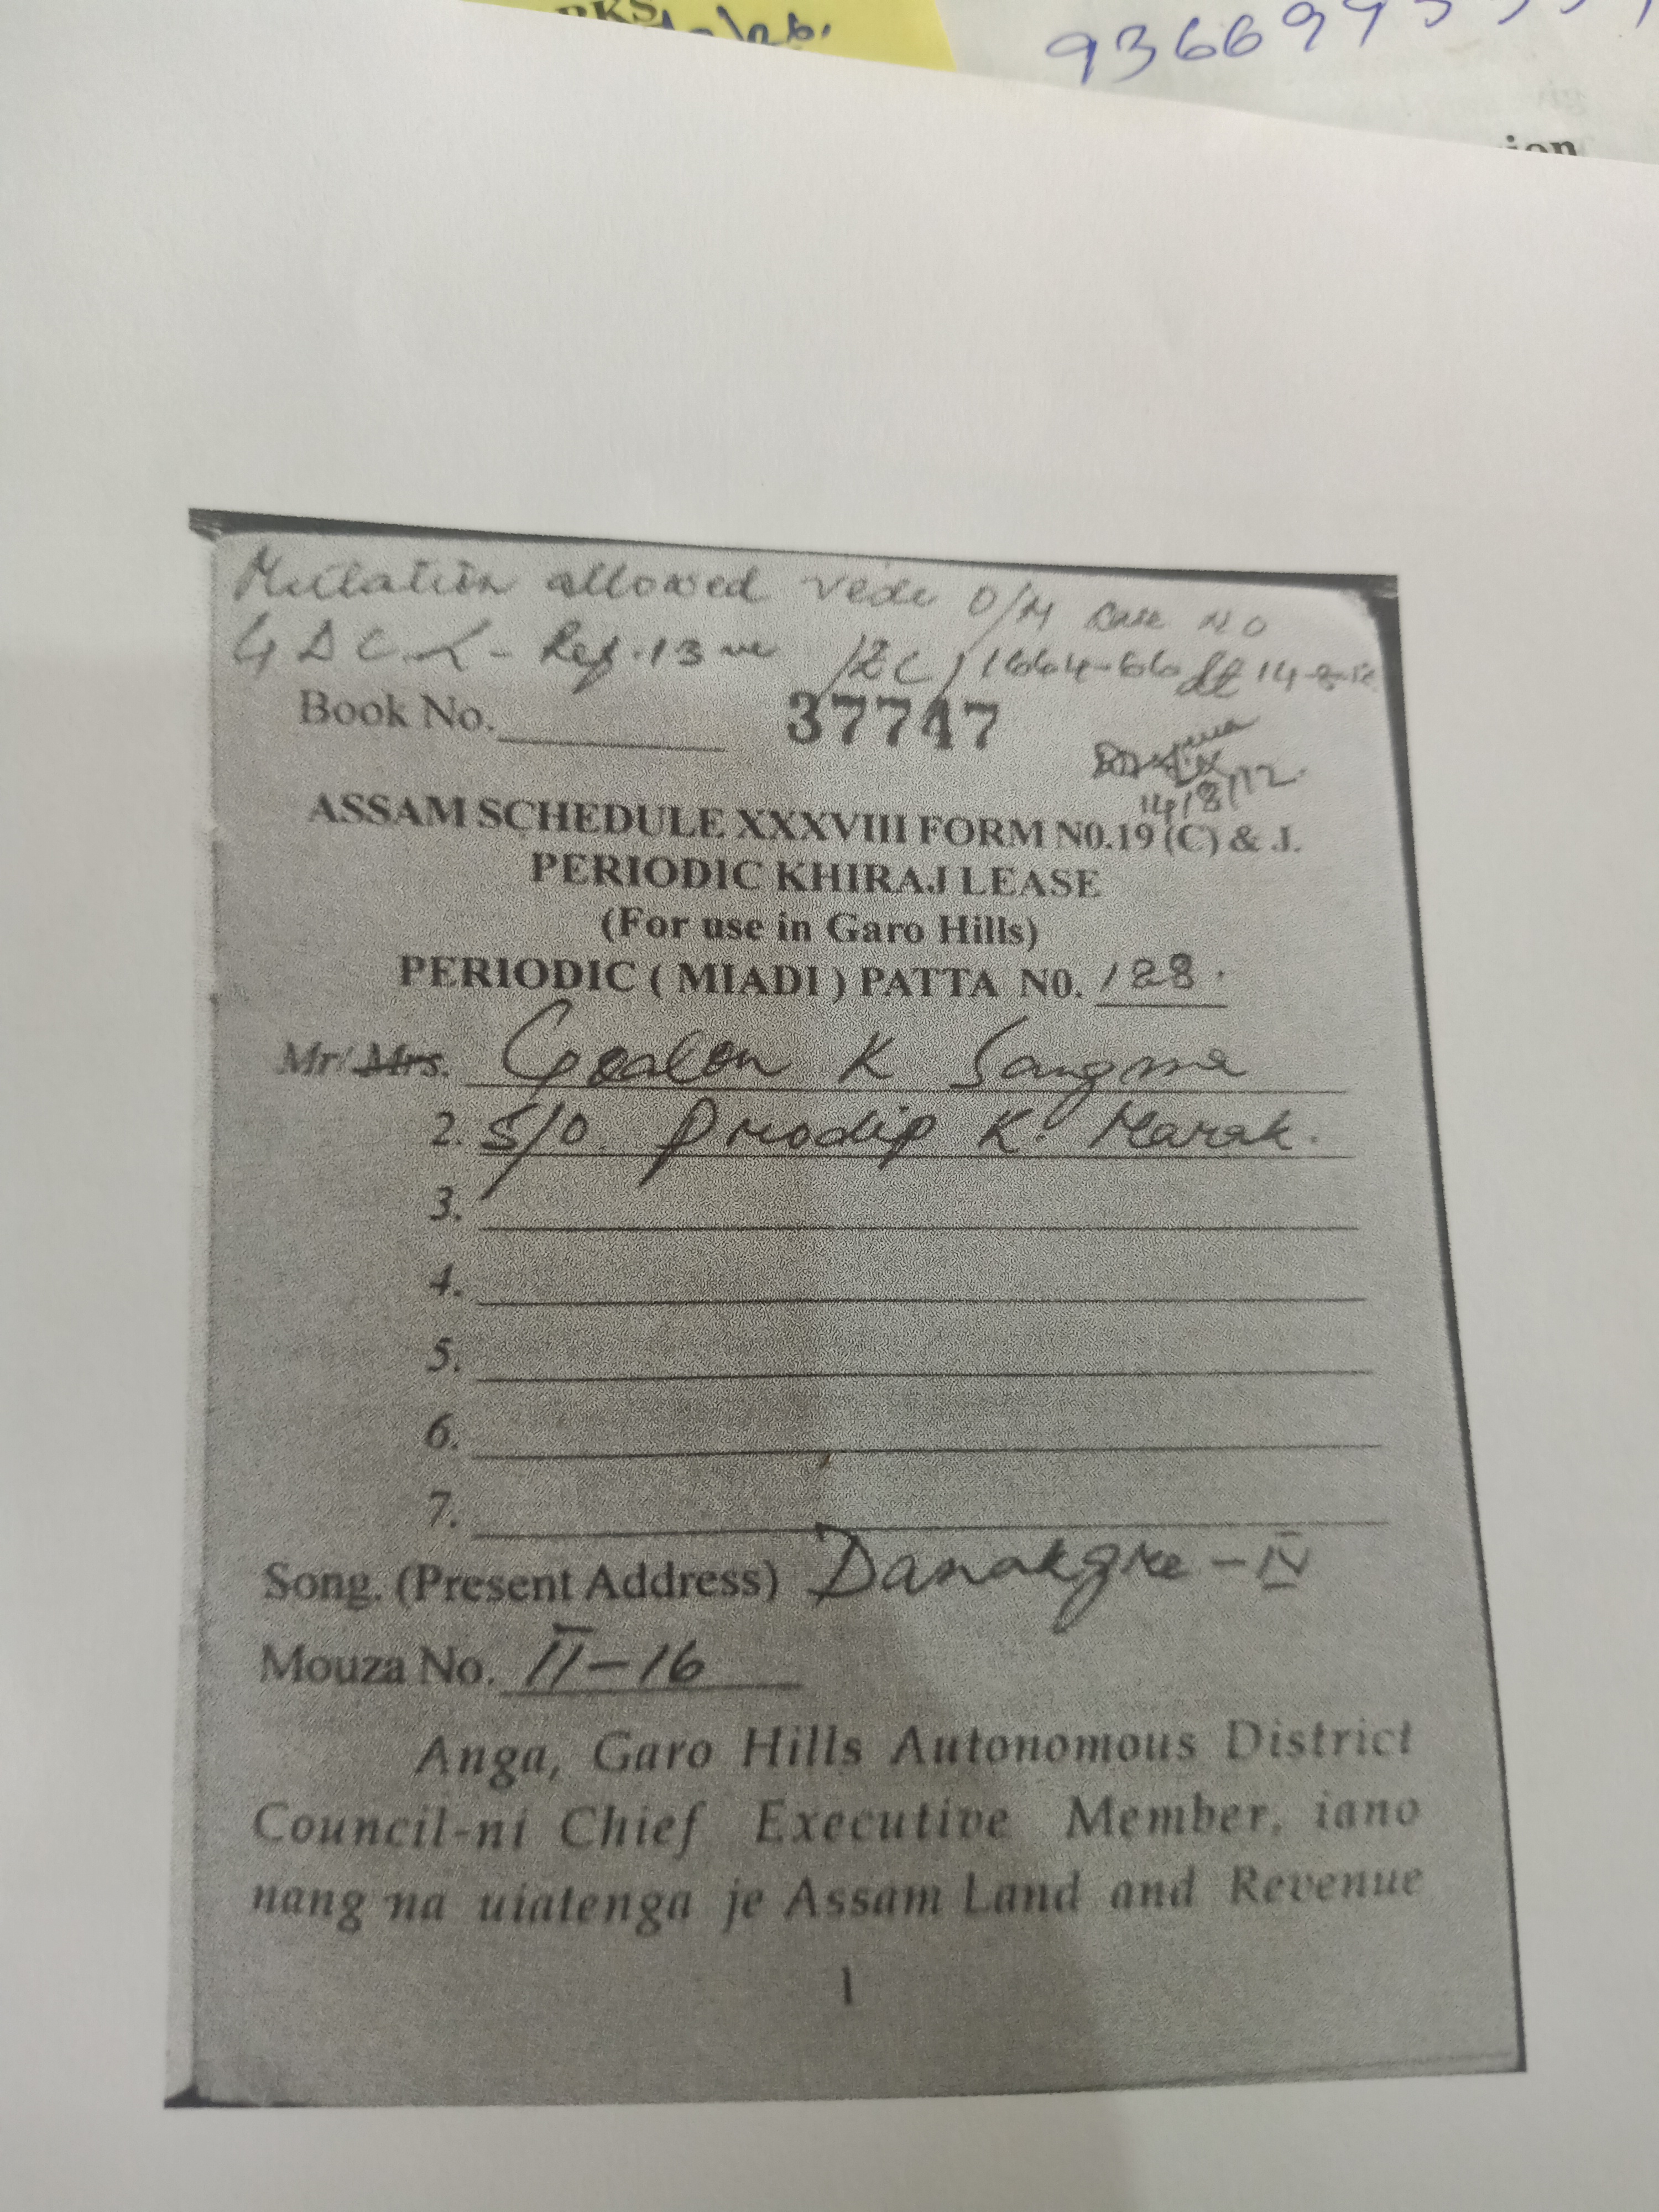 RKS
9366
ion
Mutation allowed vide O/M Case NO
GDC. - Rev. 13 /2C/1664-66 dt 14-8-12
Book No. 37747
14/8/12.
ASSAM SCHEDULE XXXVIII FORM N0.19 (C) & J.
PERIODIC KHIRAJ LEASE
(For use in Garo Hills)
PERIODIC ( MIADI ) PATTA N0. 128.
Mr/Mrs. K Sangma
2. S/O. Prodip K. Marak.
3.
4.
5.
6.
7.
Song. (Present Address) Danakgre - IV
Mouza No. II-16
Anga, Garo Hills Autonomous District
Council-ni Chief Executive Member, iano
nang na uiatenga je Assam Land and Revenue
1